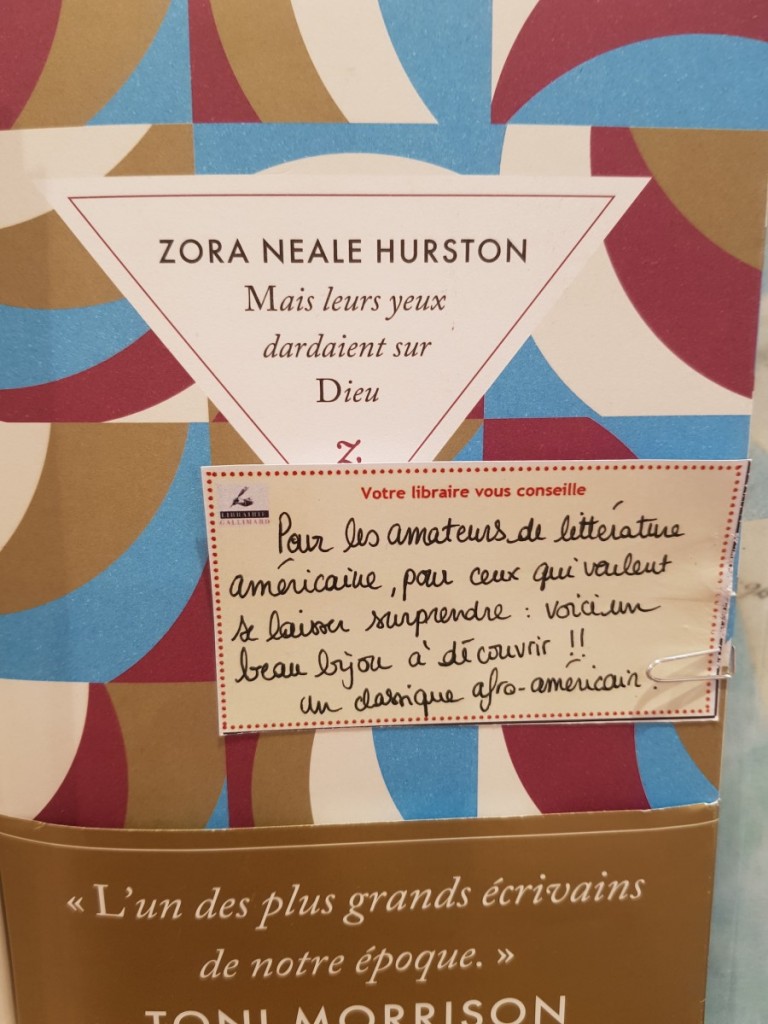 ZORA NEALE HURSTON
Mais leurs yeux
dardaient sur
Dieu
Z
Votre libraire vous conseille
LIBRAIRIE
GALLIMARD
Pour les amateurs de littérature
américaine, pour ceux qui veulent
se laisser surprendre : voici un
beau bijou à découvrir !!
un classique afro-américain.
« L'un des plus grands écrivains
de notre époque. »
TONI MORRISON